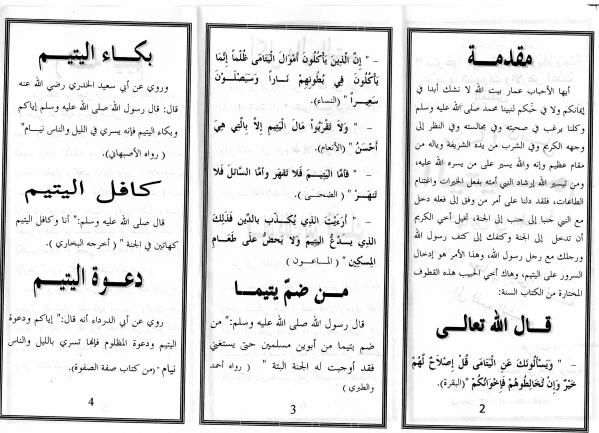 مقدمة
أيها الأحباب عمار بيت الله لا نشك أبدا في
إيمانكم ولا في حُبكم لنبينا محمد صلى الله عليه وسلم
وكلنا يرغب في صحبته وفي مجالسته وفي النظر إلى
وجهه الكريم وفي الشرب من يده الشريفة وياله من
مقام عظيم وإنه يسير على من يسره الله عليه،
ومن تيسير الله إرشاد النبي أمته بفعل الخيرات واغتنام
الطاعات، فلقد دلنا على أمر من وفق إلى فعله دخل
مع النبي جنبا إلى جنب إلى الجنة، تخيل أخي الكريم
أن تدخل إلى الجنة وكتفك إلى كتف رسول الله
ورجلك مع رجل رسول الله، وهذا الأمر هو إدخال
السرور على اليتيم، وهاك أخي الحبيب هذه القطوف
المختارة من الكتاب السنة:
قال الله تعالى
– " وَيَسْأَلُونَكَ عَنِ الْيَتَامَى قُلْ إِصْلَاحٌ لَّهُمْ
خَيْرٌ وَإِنْ تُخَالِطُوهُمْ فَإِخْوَانُكُمْ "(البقرة).
2
– " إِنَّ الَّذِينَ يَأْكُلُونَ أَمْوَالَ الْيَتَامَى ظُلْماً إِنَّمَا
يَأْكُلُونَ فِي بُطُونِهِمْ نَاراً وَسَيَصْلَوْنَ
سَعِيراً " (النساء).
– " وَلَا تَقْرَبُوا مَالَ الْيَتِيمِ إِلاَّ بِالَّتِي هِيَ
أَحْسَنُ " (الأنعام).
– " فَأَمَّا الْيَتِيمَ فَلَا تَقْهَر وَأَمَّا السَّائلَ فَلَا
تَنْهَرْ " ( الضحى ).
– " أَرَءَيْتَ الَّذِي يُكَذِّبُ بِالدِّينِ فَذَلِكَ
الَّذِي يَدُعُّ الْيَتِيمَ وَلَا يَحُضُّ عَلَى طَعَامِ
الْمِسْكِينِ " ( الماعون ).
من ضمّ يتيما
قال رسول الله صلى الله عليه وسلم:" من
ضم يتيما من أبوين مسلمين حتى يستغني
فقد أوجبت له الجنة البتة " ( رواه أحمد
والطبري )
3
بكاء اليتيم
وروي عن أبي سعيد الخدري رضي الله عنه
قال: قال رسول الله صلى الله عليه وسلم إياكم
وبكاء اليتيم فإنه يسري في الليل والناس نيام"
( رواه الأصبهاني).
كافل اليتيم
قال صلى الله عليه وسلم:" أنا وكافل اليتيم
كهاتين في الجنة " ( أخرجه البخاري ).
دعوة اليتيم
روي عن أبي الدرداء أنه قال:" إياكم ودعوة
اليتيم ودعوة المظلوم فإنها تسري بالليل والناس
نيام "(من كتاب صفة الصفوة).
4